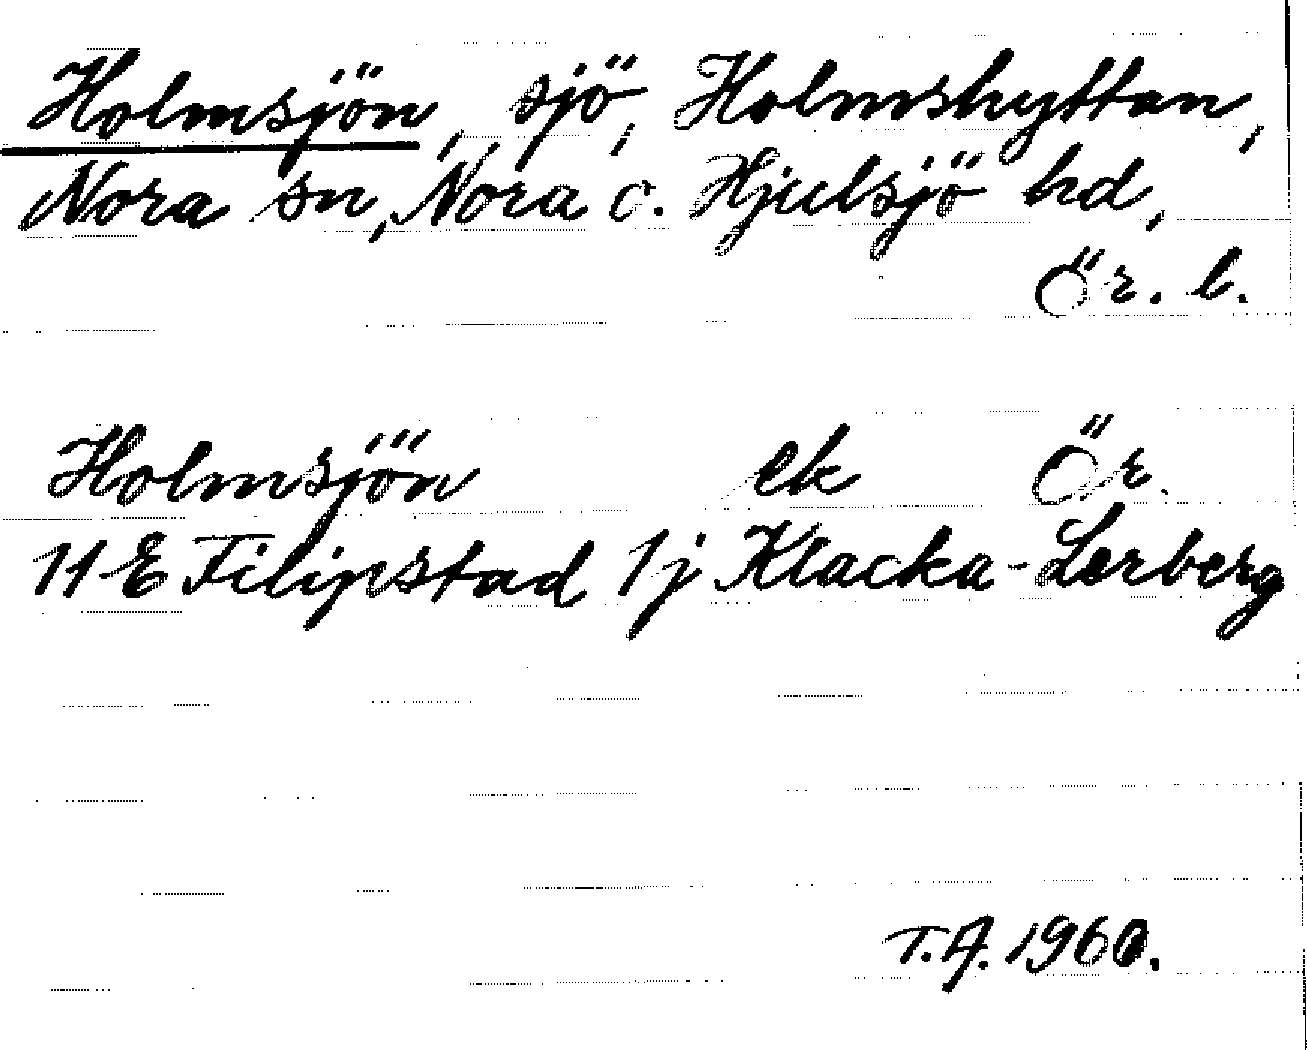 Holmsjön, sjö, Holmshyttan,
Nora sn, Nora o. Hjulsjö hd,
Ör. l.
Holmsjön ek Ör.
11 E Filipstad 1j Klacka-Lerberg
T.A. 1960.